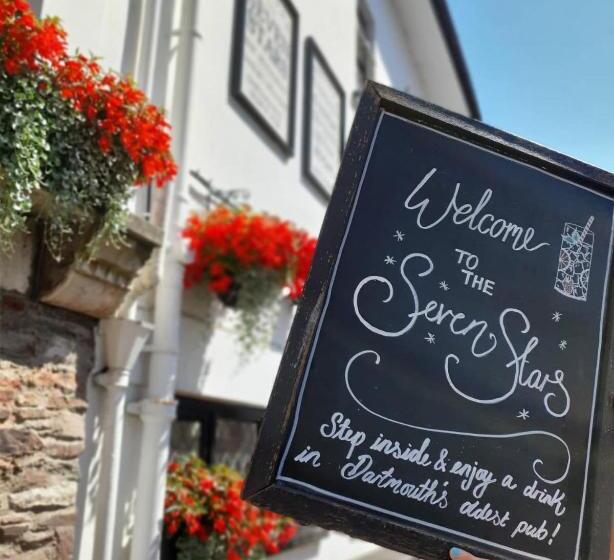 Welcome
TO
THE
Seven Stars
Step inside & enjoy a drink
in Dartmouth's oldest pub!